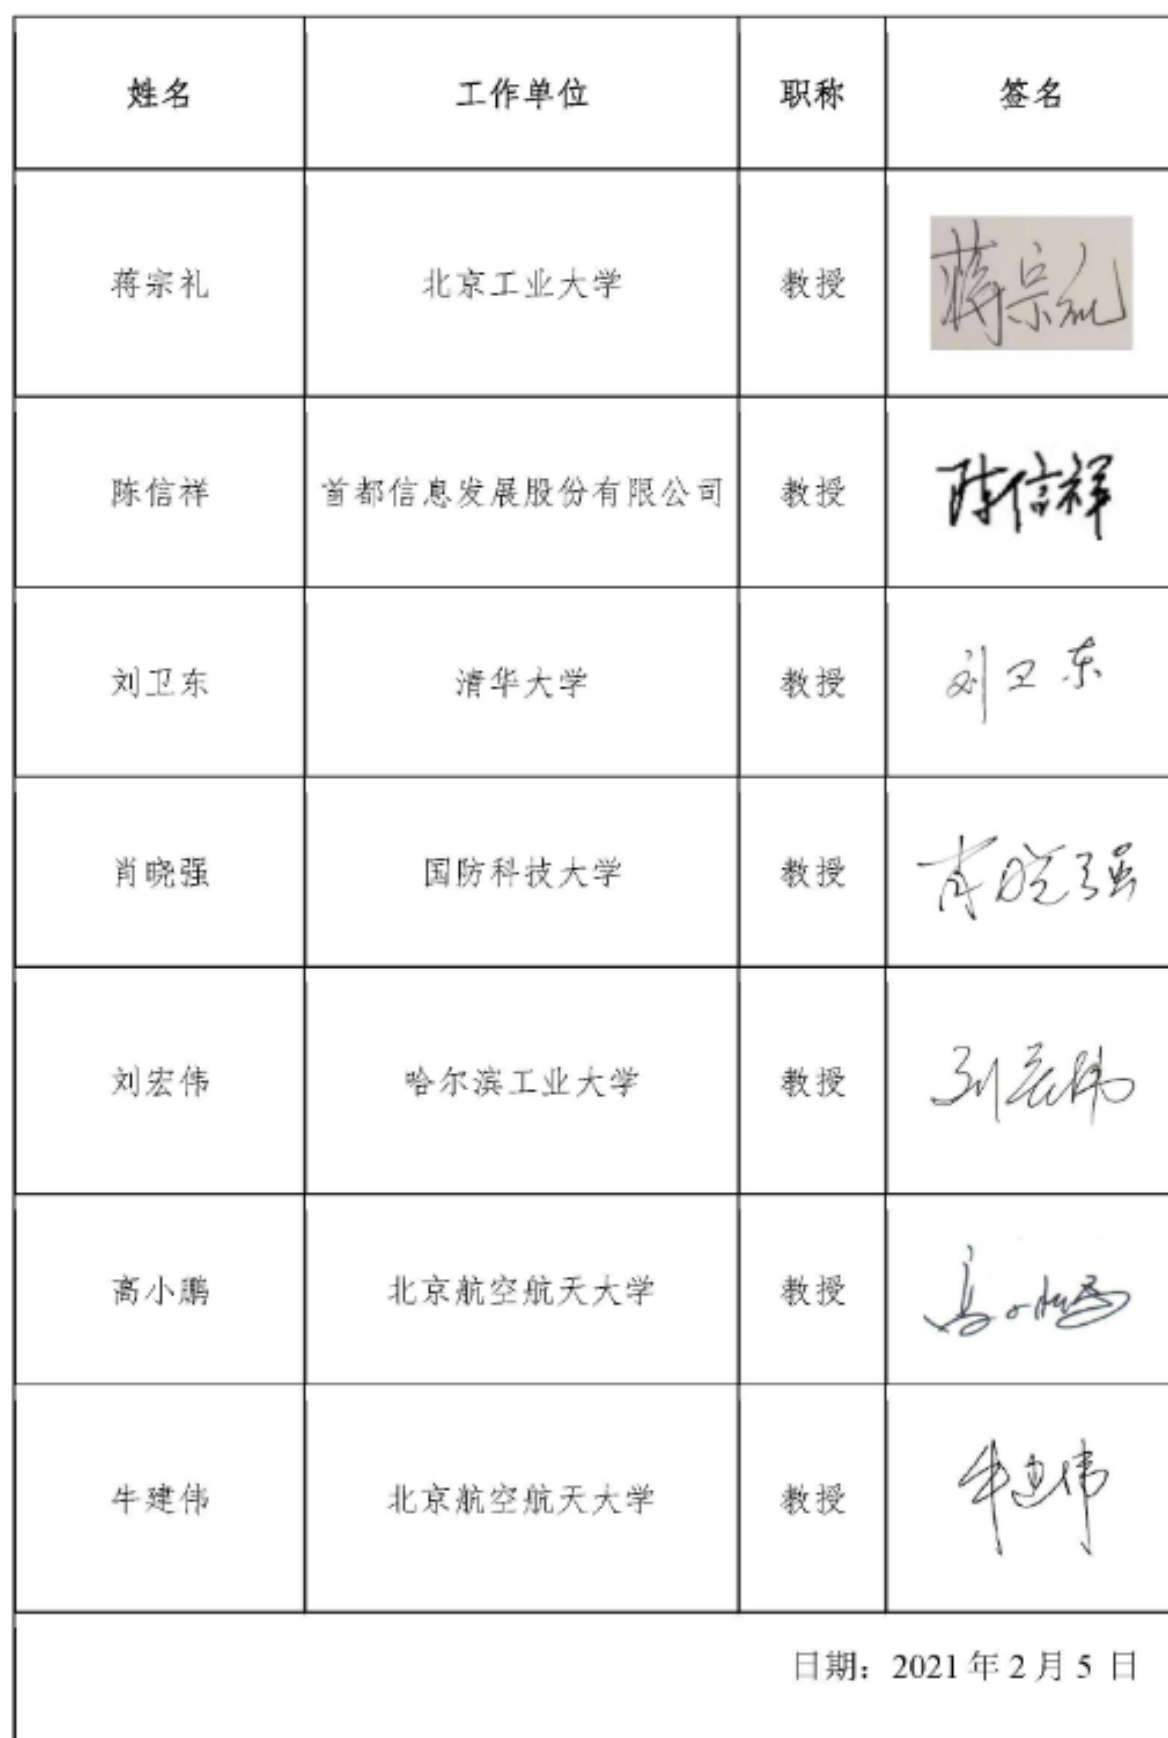 姓名 工作单位 职称 签名
蒋宗礼 北京工业大学 教授 蒋宗礼
陈信祥 首都信息发展股份有限公司 教授 陈信祥
刘卫东 清华大学 教授 刘卫东
肖晓强 国防科技大学 教授 肖晓强
刘宏伟 哈尔滨工业大学 教授 刘宏伟
高小鹏 北京航空航天大学 教授 高小鹏
牛建伟 北京航空航天大学 教授 牛建伟
日期：2021年2月5日